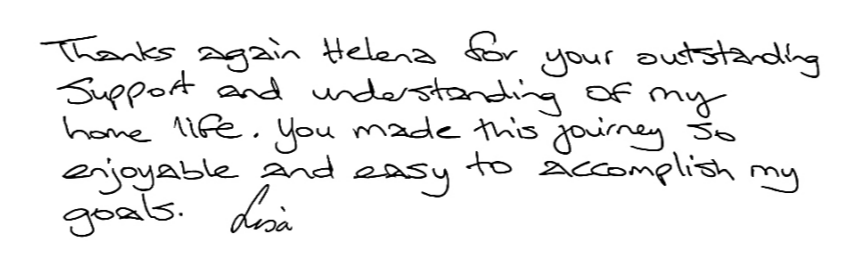 Thanks again Helena for your outstanding
Support and understanding of my
home life. You made this journey so
enjoyable and easy to accomplish my
goals. Lisa